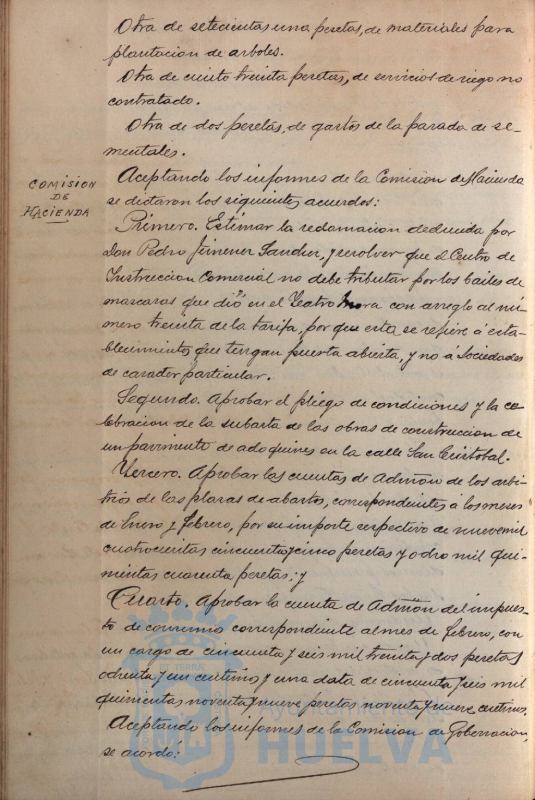 Otra de setecientas una pesetas, de materiales para
plantacion de arboles.
Otra de ciento treinta pesetas, de servicios de riego no
contratado.
Otra de dos pesetas, de gastos de la parada de se-
mentales.
COMISION
DE
HACIENDA
Aceptando los informes de la Comision de Hacienda
se dictaron los siguientes acuerdos:
Primero. Estimar la reclamacion deducida por
Don Pedro Jimenez Sanchez, y resolver que el Centro de
Instruccion Comercial no debe tributar por los bailes de
mascaras que dió en el Teatro Mora con arreglo al nú-
mero treinta de la tarifa, por que esta se refiere á esta-
blecimientos que tengan puerta abierta, y no á Sociedades
de caracter particular.
Segundo. Aprobar el pliego de condiciones y la ce-
lebracion de la subasta de las obras de construccion de
un pavimento de adoquines en la calle San Cristobal.
Tercero. Aprobar las cuentas de Admõn de los arbi-
trios de las plazas de abastos, correspondientes á los meses
de Enero y Febrero, por su importe respectivo de nueve mil
cuatrocientas cincuenta y cinco pesetas y ocho mil qui-
nientas cuarenta pesetas; y
Cuarto. Aprobar la cuenta de Admõn del impues-
to de consumos correspondiente al mes de Febrero, con
un cargo de cincuenta y seis mil treinta y dos pesetas
ochenta y un centimos y una data de cincuenta y seis mil
quinientas noventa y nueve pesetas noventa y nueve centimos.
Aceptando los informes de la Comision de Gobernacion,
se acordó:
Ayuntamiento de
HUELVA